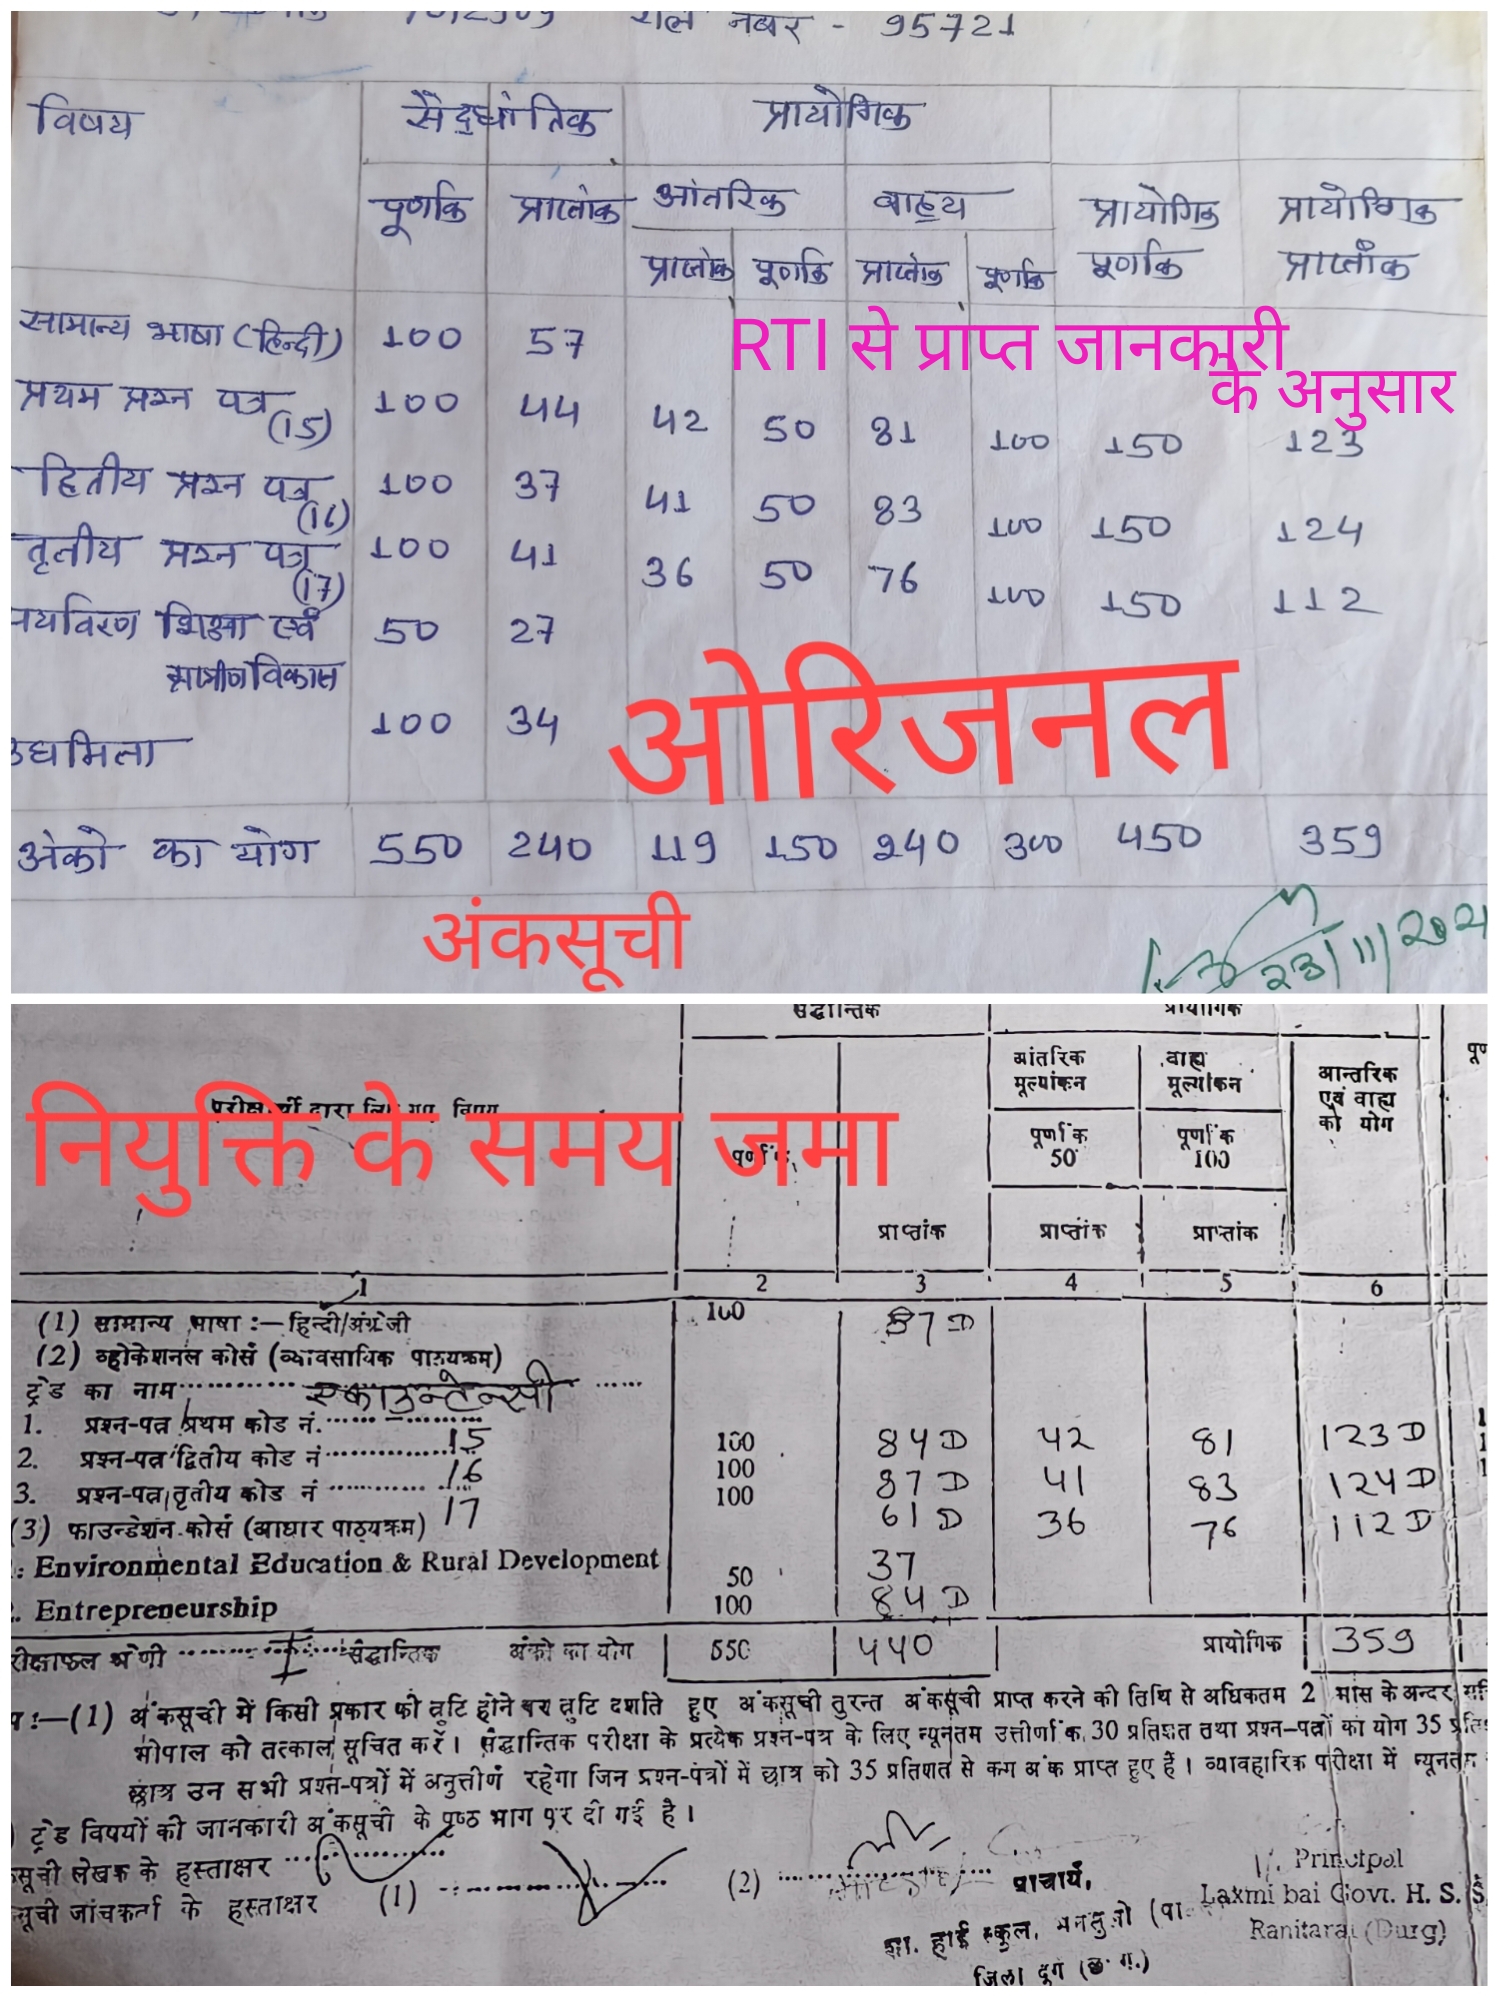 रोल नंबर - 95721
विषय सैद्धांतिक प्रायोगिक
पूर्णांक प्राप्तांक आंतरिक बाह्य प्रायोगिक पूर्णांक प्रायोगिक प्राप्तांक
प्राप्तांक पूर्णांक प्राप्तांक पूर्णांक
सामान्य भाषा (हिन्दी) 100 57
RTI से प्राप्त जानकारी
के अनुसार
प्रथम प्रश्न पत्र (15) 100 44 42 50 81 100 150 123
द्वितीय प्रश्न पत्र (16) 100 37 41 50 83 100 150 124
तृतीय प्रश्न पत्र (17) 100 41 36 50 76 100 150 112
शिक्षा एवं 50 27
ग्रामीण विकास
उद्यमिता 100 34
ओरिजनल
अंको का योग 550 240 119 150 240 300 450 359
अंकसूची
23/11/202
सैद्धान्तिक प्रायोगिक
नियुक्ति के समय जमा
आंतरिक मूल्यांकन वाह्य मूल्यांकन आन्तरिक एवं वाह्य को योग
पूर्णांक पूर्णांक 50 पूर्णांक 100
प्राप्तांक प्राप्तांक प्राप्तांक
1 2 3 4 5 6
(1) सामान्य भाषा :— हिन्दी/अंग्रेजी 100 87 D
(2) व्होकेशनल कोर्स (व्यावसायिक पाठ्यक्रम)
ट्रेड का नाम एकाउन्टेन्सी
1. प्रश्न-पत्र प्रथम कोड नं. 15 100 84 D 42 81 123 D
2. प्रश्न-पत्र द्वितीय कोड नं 16 100 87 D 41 83 124 D
3. प्रश्न-पत्र तृतीय कोड नं 17 100 61 D 36 76 112 D
(3) फाउन्डेशन कोर्स (आधार पाठ्यक्रम)
: Environmental Education & Rural Development 50 37
. Entrepreneurship 100 84 D
श्रेणी I सैद्धान्तिक अंको का योग 550 440 प्रायोगिक 359
:—(1) अंकसूची में किसी प्रकार की त्रुटि होने पर त्रुटि दर्शाते हुए अंकसूची तुरन्त अंकसूची प्राप्त करने की तिथि से अधिकतम 2 मास के अन्दर
भोपाल को तत्काल सूचित करें। सैद्धान्तिक परीक्षा के प्रत्येक प्रश्न-पत्र के लिए न्यूनतम उत्तीर्णांक 30 प्रतिशत तथा प्रश्न-पत्रों का योग 35
छात्र उन सभी प्रश्न-पत्रों में अनुत्तीर्ण रहेगा जिन प्रश्न-पत्रों में छात्र को 35 प्रतिशत से कम अंक प्राप्त हुए हैं। व्यावहारिक परीक्षा में न्यूनतम
ट्रेड विषयों की जानकारी अंकसूची के पृष्ठ भाग पर दी गई है।
लेखक के हस्ताक्षर
जांचकर्ता के हस्ताक्षर (1) (2)
प्राचार्य,
शा. हाई स्कूल,
जिला दुर्ग (छ.ग.)
Principal
Laxmi bai Govt. H. S. S
Ranitarai (Durg)